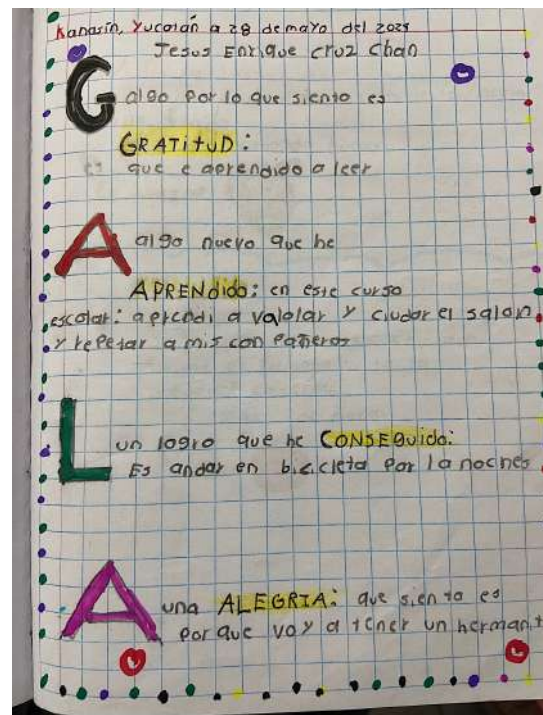 Kanasín, Yucatán a 28 de mayo del 2025
Jesus Enrique cruz chan
G algo por lo que siento es
GRATituD:
es que e aprendido a leer
A algo nuevo que he
APRENdido: en este curso
escolar: aprendi a valolar y ciudar el salon
y repetar a mis con pañeros
L un logro que he CONSEguido:
Es andar en bicicleta por la noches
A una ALEGRIA: que siento es
porque voy a tener un hermanit